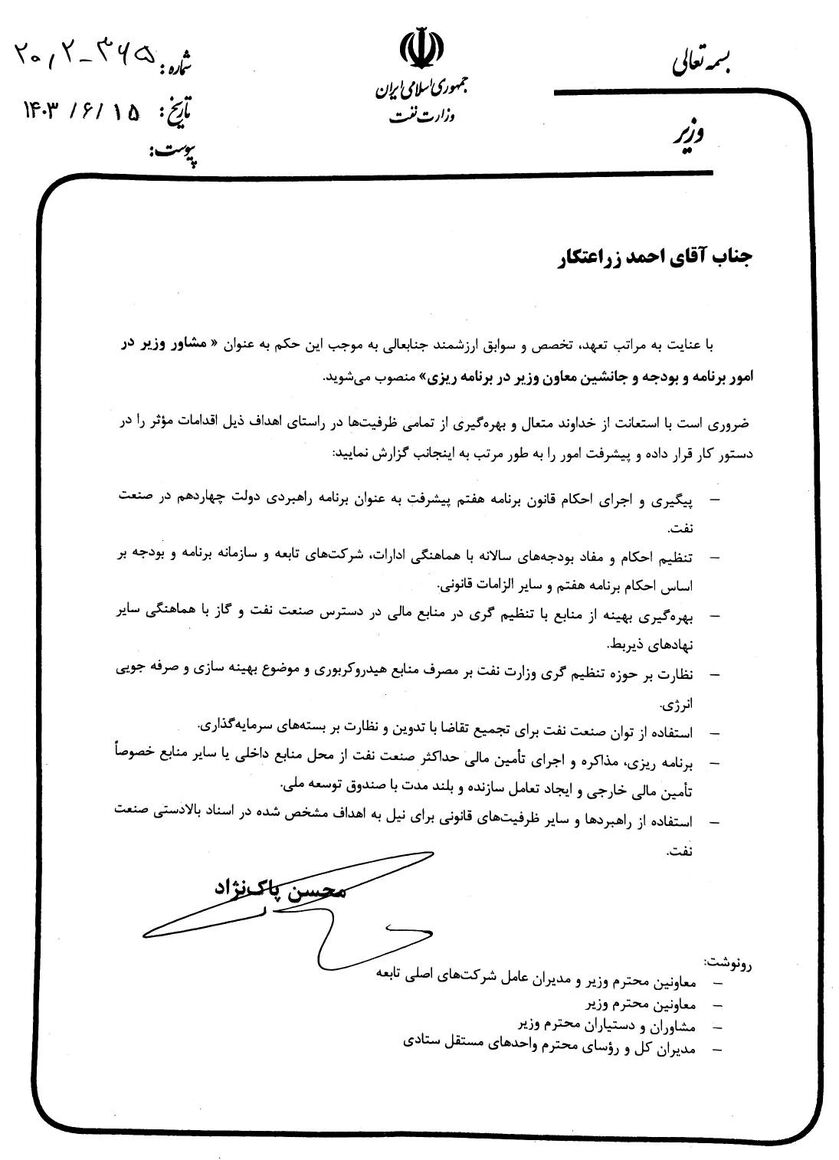 بسمه تعالی
وزیر
جمهوری اسلامی ایران
وزارت نفت
شماره: ۲۰٫۲-۳۶۵
تاریخ: ۱۴۰۳/۶/۱۵
پیوست:
جناب آقای احمد زراعتکار
با عنایت به مراتب تعهد، تخصص و سوابق ارزشمند جنابعالی به موجب این حکم به عنوان « مشاور وزیر در
امور برنامه و بودجه و جانشین معاون وزیر در برنامه ریزی» منصوب می‌شوید.
ضروری است با استعانت از خداوند متعال و بهره‌گیری از تمامی ظرفیت‌ها در راستای اهداف ذیل اقدامات مؤثر را در
دستور کار قرار داده و پیشرفت امور را به طور مرتب به اینجانب گزارش نمایید:
– پیگیری و اجرای احکام قانون برنامه هفتم پیشرفت به عنوان برنامه راهبردی دولت چهاردهم در صنعت
نفت.
– تنظیم احکام و مفاد بودجه‌های سالانه با هماهنگی ادارات، شرکت‌های تابعه و سازمانه برنامه و بودجه بر
اساس احکام برنامه هفتم و سایر الزامات قانونی.
– بهره‌گیری بهینه از منابع با تنظیم گری در منابع مالی در دسترس صنعت نفت و گاز با هماهنگی سایر
نهادهای ذیربط.
– نظارت بر حوزه تنظیم گری وزارت نفت بر مصرف منابع هیدروکربوری و موضوع بهینه سازی و صرفه جویی
انرژی.
– استفاده از توان صنعت نفت برای تجمیع تقاضا با تدوین و نظارت بر بسته‌های سرمایه‌گذاری.
– برنامه ریزی، مذاکره و اجرای تأمین مالی حداکثر صنعت نفت از محل منابع داخلی یا سایر منابع خصوصاً
تأمین مالی خارجی و ایجاد تعامل سازنده و بلند مدت با صندوق توسعه ملی.
– استفاده از راهبردها و سایر ظرفیت‌های قانونی برای نیل به اهداف مشخص شده در اسناد بالادستی صنعت
نفت.
محسن پاک‌نژاد
رونوشت:
– معاونین محترم وزیر و مدیران عامل شرکت‌های اصلی تابعه
– معاونین محترم وزیر
– مشاوران و دستیاران محترم وزیر
– مدیران کل و رؤسای محترم واحدهای مستقل ستادی